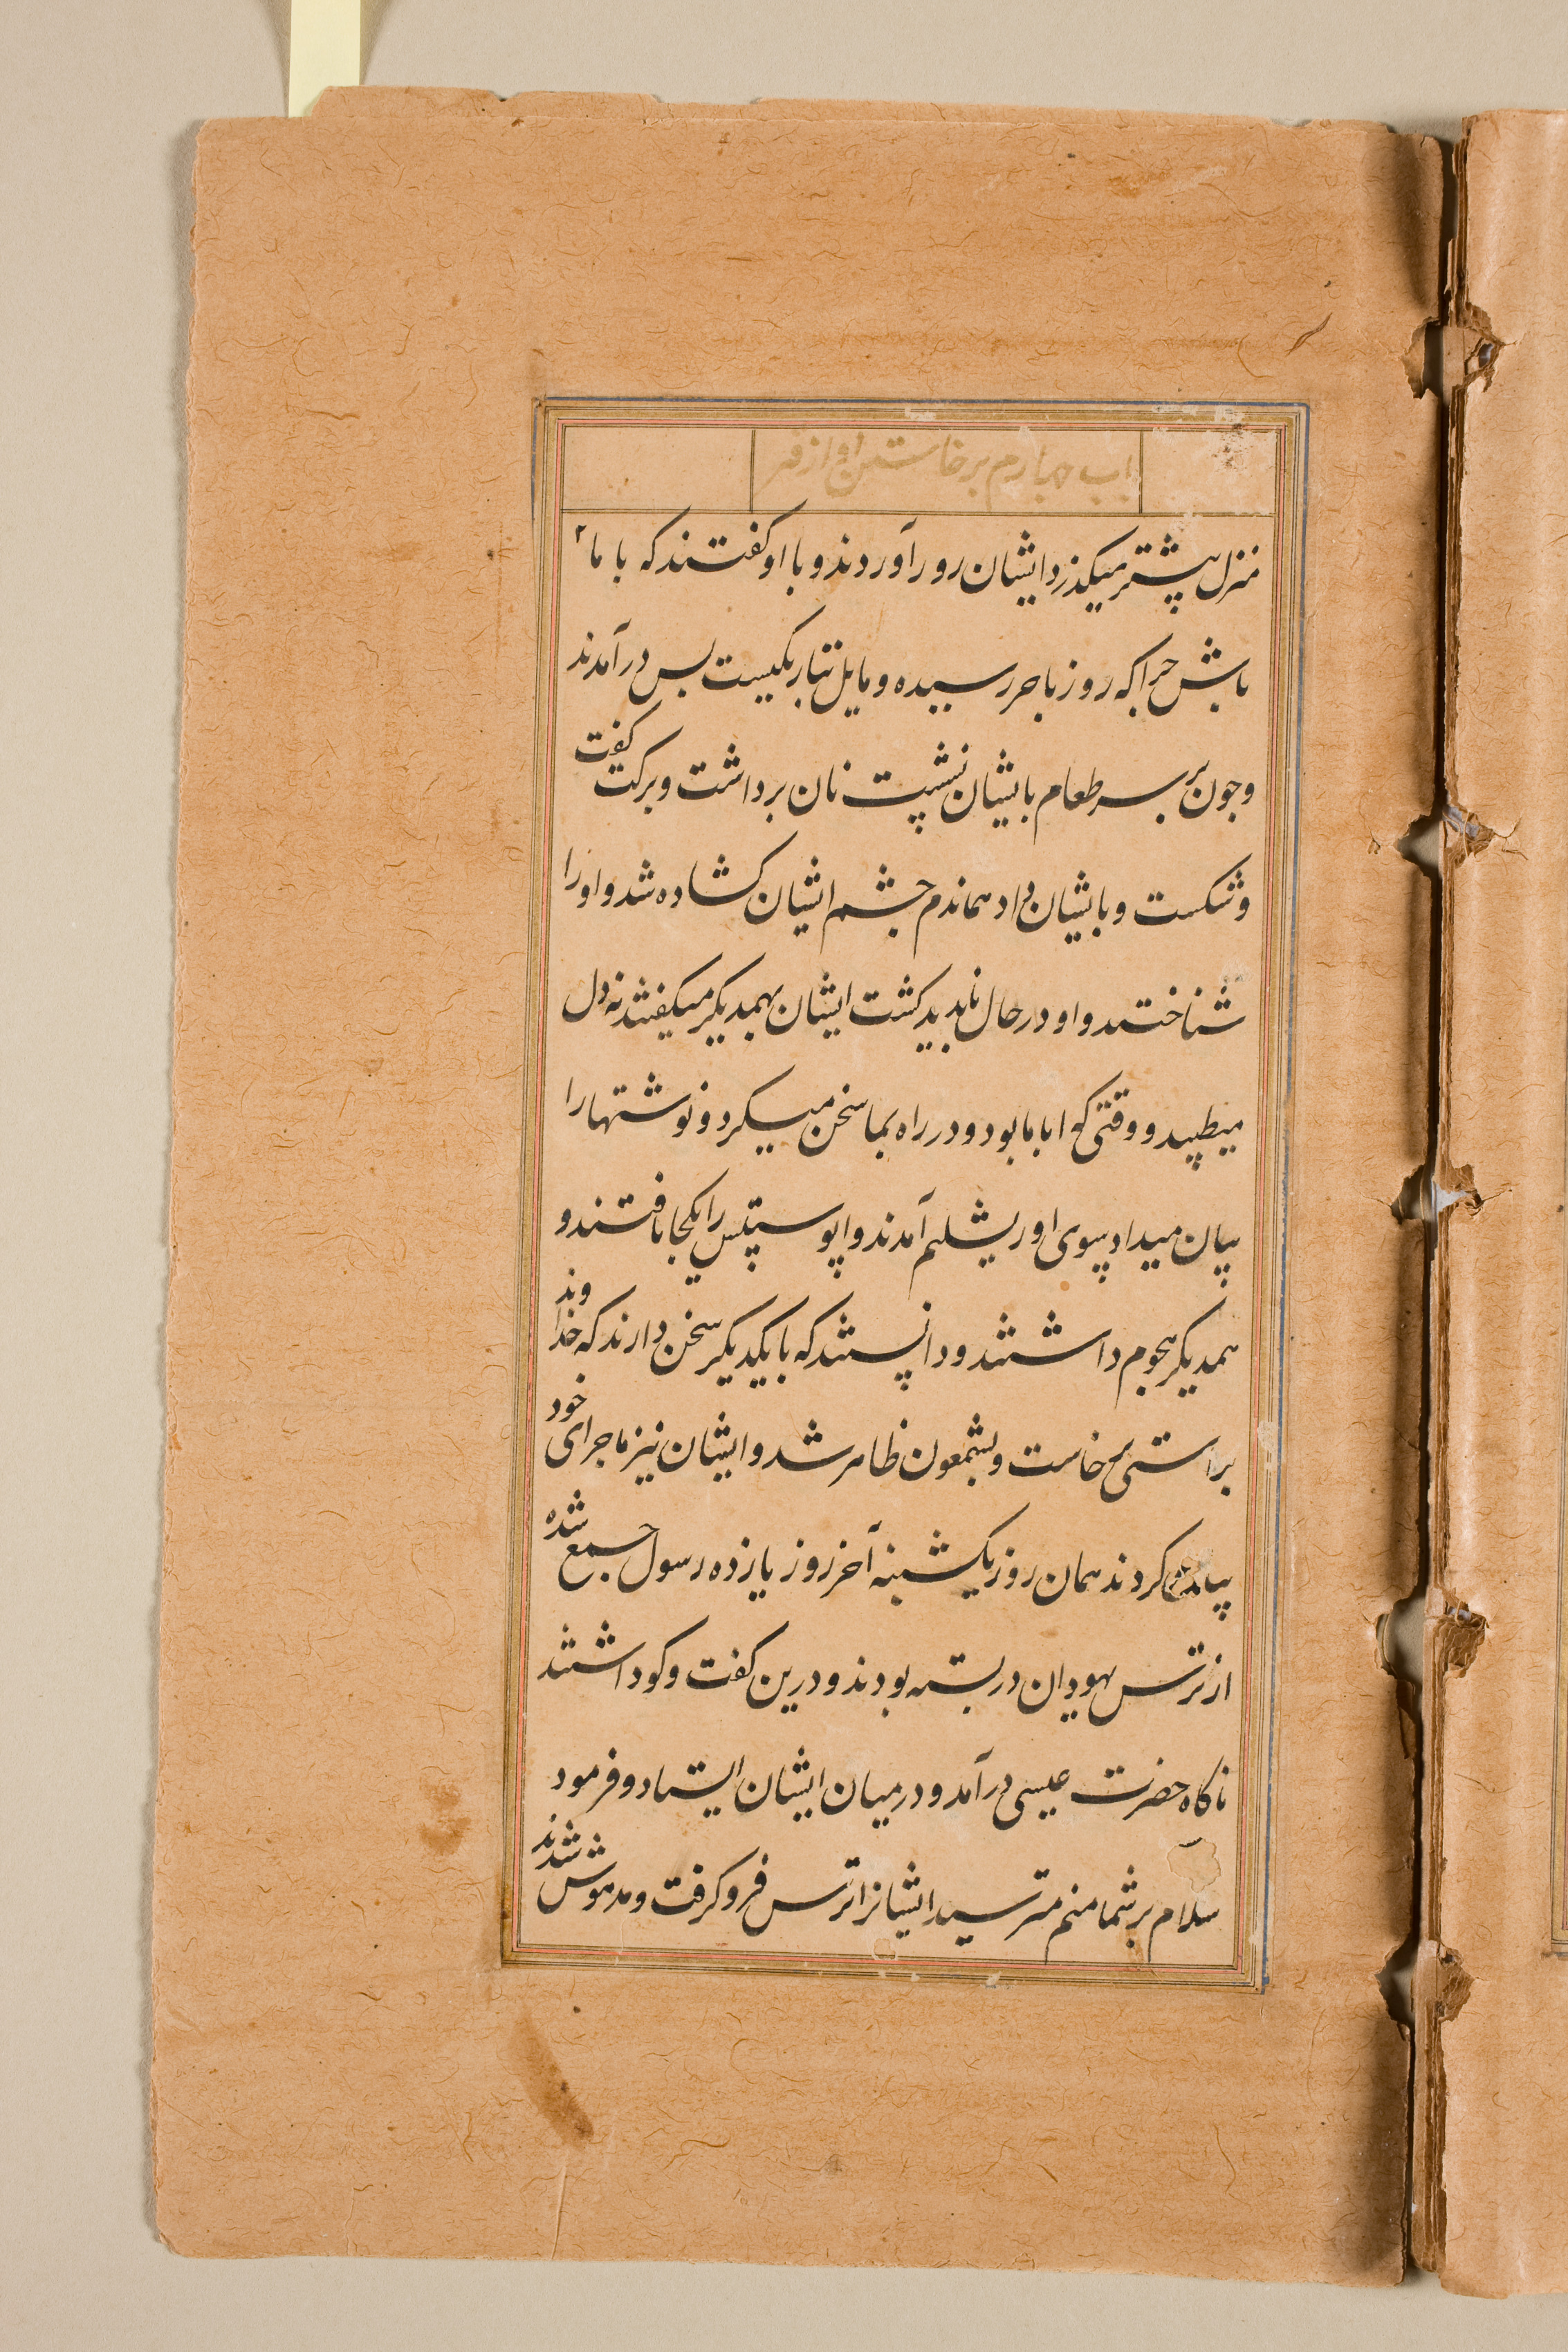 باب چهارم برخاستن او از قبر
منزل پیشتر میکذرد ایشان رو رآوردند و با او کفتند که با ما
باش جراکه روز باخر رسیده و مایل بتاریکیست بس درآمدند
وجون بر سر طعام بایشان نشپت نان برداشت و برکت کفت
وشکست و بایشان داد هماندم جشم ایشان کشاده شد و او را
شناختند و او در حال نابدید کشت ایشان بهمدیکر میکفتند نه دل
میطپید و وقتی که او با ما بود و در راه بما سخن میکرد و نوشتهارا
بیان میداد پسوی اوریشلیم آمدند و اپوستپلس را یکجا یافتند و
همدیکر هجوم داشتند و دانپستند که با یکدیکر سخن دارند که خداوند
براستی برخاست و بشمعون ظاهر شد و ایشان نیز ماجرای خود
بیان کردند همان روز یکشنبه آخر روز یازده رسول جمع شده
از ترس یهودیان در بسته بودند و درین کفت و کو داشتند
ناکاه حضرت عیسی درآمد و در میان ایشان ایستاد و فرمود
سلام بر شما منم مترسید ایشانرا ترس فرو کرفت و مدهوش شدند